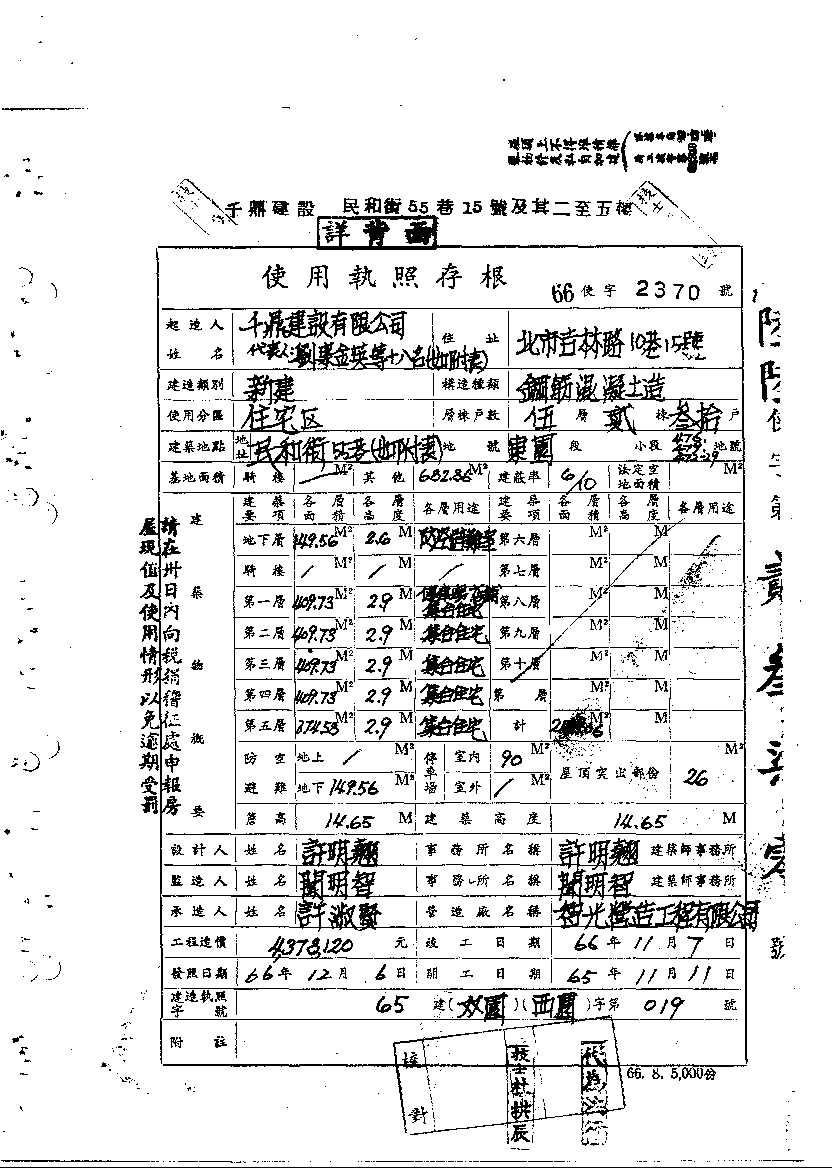 千鼎建設 民和街55巷15號及其二至五樓
詳背面
使用執照存根
66 使字 2370 號
起造人 姓名 千鼎建設有限公司 代表人:
住址 北市吉林路10巷15號
建造類別 新建 構造種類 鋼筋混凝土造
使用分區 住宅区 層棟戶數 伍層 貳棟 叁拾戶
建築地點 地址 民和街55巷(如附表) 地號 東園 段 小段 地號
基地面積 騎樓 M² 其他 682.86 M² 建蔽率 6/10 法定空地面積 M²
建築物概要
建築要項 各層面積 各層高度 各層用途 建築要項 各層面積 各層高度 各層用途
地下層 149.56 M² 2.6 M 第六層 M² M
騎樓 / M² / M / 第七層 M² M
第一層 409.73 M² 2.9 M 集合住宅 第八層 M² M
第二層 409.73 M² 2.9 M 集合住宅 第九層 M² M
第三層 409.73 M² 2.9 M 集合住宅 第十層 M² M
第四層 409.73 M² 2.9 M 集合住宅 第 層 M² M
第五層 374.58 M² 2.9 M 集合住宅 計 M² M
防空避難 地上 / M² 停車場 室內 90 M² 屋頂突出部份 26 M²
地下 149.56 M² 室外 / M²
簷高 14.65 M 建築高度 14.65 M
設計人 姓名 許明翹 事務所名稱 許明翹 建築師事務所
監造人 姓名 闕明智 事務所名稱 闕明智 建築師事務所
承造人 姓名 許淑賢 營造廠名稱 營造工程有限公司
工程造價 4,378,120 元 竣工日期 66年11月7日
發照日期 66年12月6日 開工日期 65年11月11日
建造執照字號 65 建(双園)(西園)字第 019 號
附註
核對
技士杜拱辰
66. 8. 5,000份
請在卅日內向稅捐稽征處申報房
屋現值及使用情形以免逾期受罰